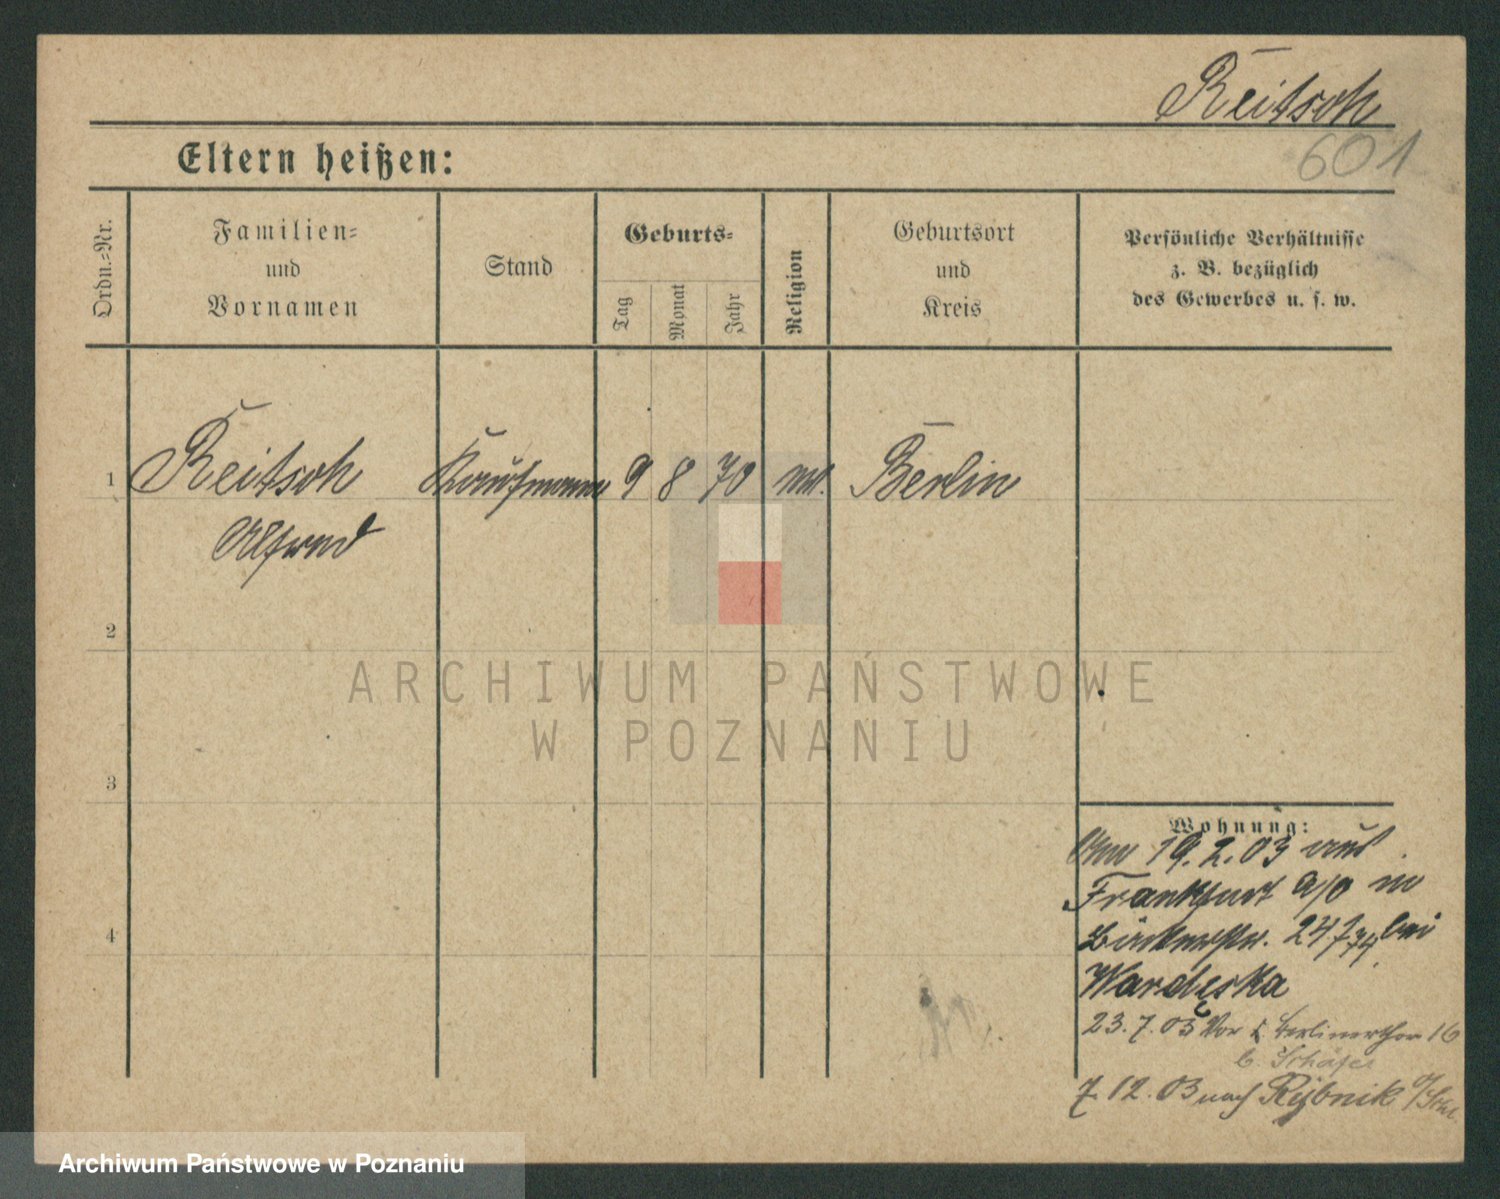 Reitsch
601
Eltern heißen:
Ordn.-Nr.
Familien-
und
Vornamen
Stand
Geburts-
Tag
Monat
Jahr
Religion
Geburtsort
und
Kreis
Persönliche Verhältnisse
z. B. bezüglich
des Gewerbes u. s. w.
1 Reitsch Kaufmann 9 8 70 Berlin
Alfred
2
ARCHIWUM PAŃSTWOWE
W POZNANIU
3
Wohnung:
19.2.03 aus
Frankfurt a/o in
bei
4
23.7.03 Vor d. Berlinerthor 16
b. Schäfer
7.12.03 nach Rybnik
Archiwum Państwowe w Poznaniu